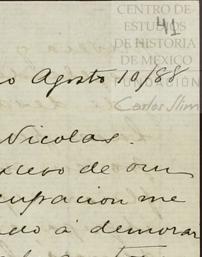 CENTRO DE
ESTUDIOS
DE HISTORIA
DE MÉXICO
FUNDACIÓN
Carlos Slim
41
o Agosto 10/88
Nicolas.
exceso de
cupacion me
do á demorar